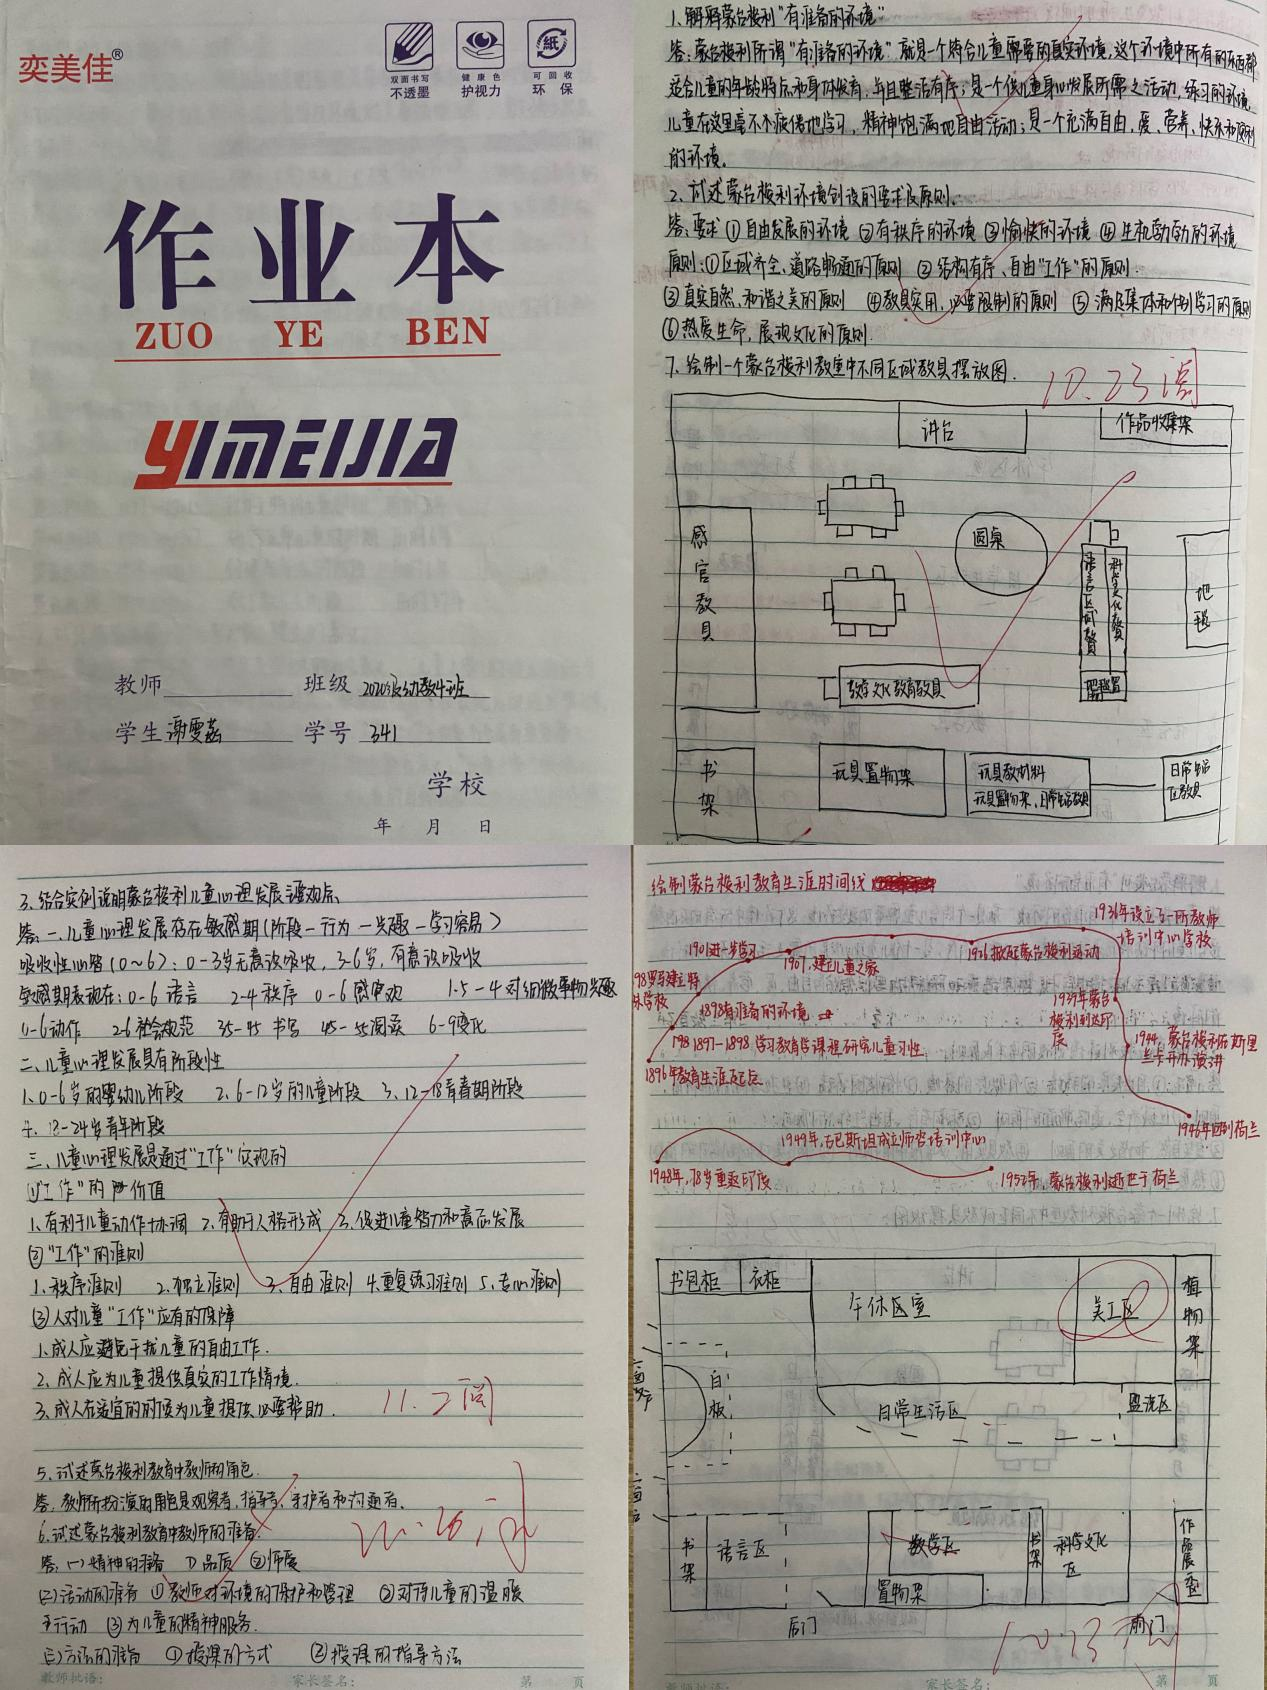 奕美佳®
双面书写
不透墨
健康色
护视力
可回收
环保
作业本
ZUO YE BEN
YIMEIJIA
教师 班级 2020级幼教4班
学生 谢雯蕊 学号 341
学校
年 月 日
1、解释蒙台梭利"有准备的环境"
答:蒙台梭利所谓"有准备的环境"就是一个符合儿童需要的真实环境,这个环境中所有的东西都
适合儿童的年龄特点和身体发育,并且整洁有序;是一个供儿童身心发展所需之活动,练习的环境,
儿童在这里毫不不疲倦地学习,精神饱满地自由活动;是一个充满自由、爱、营养、快乐和便利
的环境。
2、试述蒙台梭利环境创设的要求及原则。
答:要求①自由发展的环境 ②有秩序的环境 ③愉快的环境 ④生机勃勃的环境
原则:①区域齐全、道路畅通的原则 ②结构有序、自由"工作"的原则.
③真实自然、和谐之美的原则 ④教具实用、必要限制的原则 ⑤满足集体和个别学习的原则
⑥热爱生命,展现文化的原则.
7、绘制一个蒙台梭利教室中不同区域教具摆放图.
10.23阅
讲台
作品收集架
感官教具
圆桌
语言区域教具
科学文化教具
地毯
数学文化教育教具
书架
玩具置物架
玩具教材料
玩具置物架、日常生活教具
日常生活
区教具
3、结合实例说明蒙台梭利儿童心理发展主要观点、
答:一、儿童心理发展存在敏感期(阶段-行为-兴趣-学习容易)
吸收性心智(0~6):0-3岁无意识吸收,3-6岁,有意识吸收
敏感期表现在:0-6语言 2-4秩序 0-6感官观 1.5-4对细微事物兴趣
0-6动作 2-6社会规范 3.5-4.5书写 4.5-5.5阅读 6-9文化
二、儿童心理发展具有阶段性
1、0-6岁的婴幼儿阶段 2、6-12岁的儿童阶段 3、12-18青春期阶段
4、18-24岁青年阶段
三、儿童心理发展是通过"工作"实现的
①"工作"的价值
1、有利于儿童动作协调 2、有助于人格形成 3、促进儿童智力和意志发展
②"工作"的准则
1、秩序准则 2、独立准则 3、自由准则 4、重复练习准则 5、专心准则
③人对儿童"工作"应有的保障
1、成人应避免干扰儿童的自由工作.
2、成人应为儿童提供真实的工作情境.
3、成人在适宜的时候为儿童提供必要帮助.
11.2阅
5、试述蒙台梭利教育中教师的角色.
答:教师所扮演的角色是观察者,指导者、支护者和沟通者.
6、试述蒙台梭利教育中教师的准备.
答:(一)精神的准备 ①品质 ②师爱
(二)活动的准备 ①教师对环境的保护和管理 ②对待儿童的温暖
行动 ③为儿童的精神服务.
(三)方法的准备 ①授课的方式 ②授课的指导方法
教师批语: 家长签名: 第 页
绘制蒙台梭利教育生涯时间线
1896年教育生涯起点
1897-1898,学习教育学课程研究儿童习性
1898有准备的环境
1901进一步学习
1907,建立儿童之家
1916掀起蒙台梭利运动
1936年设立了一所教师
培训中心学校
1939年蒙台
梭利到达印
度
1944,蒙台梭利在斯里
兰卡开办演讲
1946年回到荷兰
1948年,78岁重返印度
1949年,在巴斯坦成立师资培训中心
1952年,蒙台梭利逝世于荷兰
书包柜
衣柜
午休区室
美工区
植物架
白板
日常生活区
盥洗区
书架
语言区
数学区
置物架
书架
科学文化
区
作品展
后门
前门
教师批语: 家长签名: 第 页